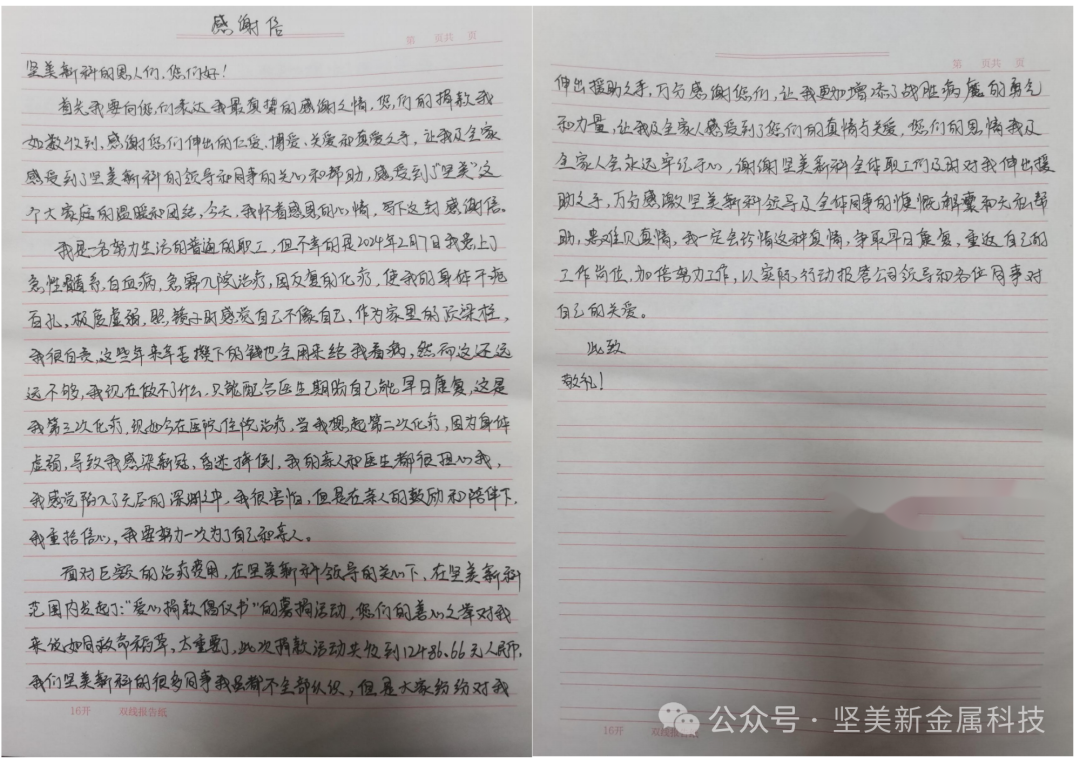 感谢信
第 页共 页
坚美新科的恩人们，您们好！
首先我要向您们表达我最真挚的感谢之情，您们的捐款我
如数收到，感谢您们伸出的仁爱、博爱、关爱和真爱之手，让我及全家
感受到了坚美新科的领导和同事的关心和帮助，感受到了“坚美”这
个大家庭的温暖和团结，今天，我怀着感恩的心情，写下这封感谢信。
我是一名努力生活的普通的职工，但不幸的是2024年2月7日我患上了
急性髓系白血病，急需入院治疗，因反复的化疗，使我的身体千疮
百孔，极度虚弱，照镜子时感觉自己不像自己，作为家里的顶梁柱，
我很自责，这些年来辛苦攒下的钱也全用来给我看病，然而这还远
远不够，我现在做不了什么，只能配合医生期盼自己能早日康复，这是
我第三次化疗，现如今在医院住院治疗，当我想起第二次化疗，因为身体
虚弱，导致我感染新冠，昏迷摔倒，我的家人和医生都很担心我，
我感觉陷入了无尽的深渊之中，我很害怕，但是在亲人的鼓励和陪伴下，
我重拾信心，我要努力一次为了自己和亲人。
面对巨额的治疗费用，在坚美新科领导的关心下，在坚美新科
范围内发起了：“爱心捐款倡仪书”的募捐活动，您们的善心之举对我
来说如同救命稻草，太重要了，此次捐款活动共收到12486.66元人民币，
我们坚美新科的很多同事我虽都不全部认识，但是大家纷纷对我
16开 双线报告纸
第 页共 页
伸出援助之手，万分感谢您们，让我更加增添了战胜病魔的勇气
和力量，让我及全家人感受到了您们的真情与关爱，您们的恩情我及
全家人会永远牢记于心，谢谢坚美新科全体职工们及时对我伸出援
助之手，万分感激坚美新科领导及全体同事的慷慨解囊和无私帮
助，患难见真情，我一定会珍惜这种真情，争取早日康复，重返自己的
工作岗位，加倍努力工作，以实际行动报答公司领导和各位同事对
自己的关爱。
此致
敬礼！
16开 双线报告纸
公众号·坚美新金属科技